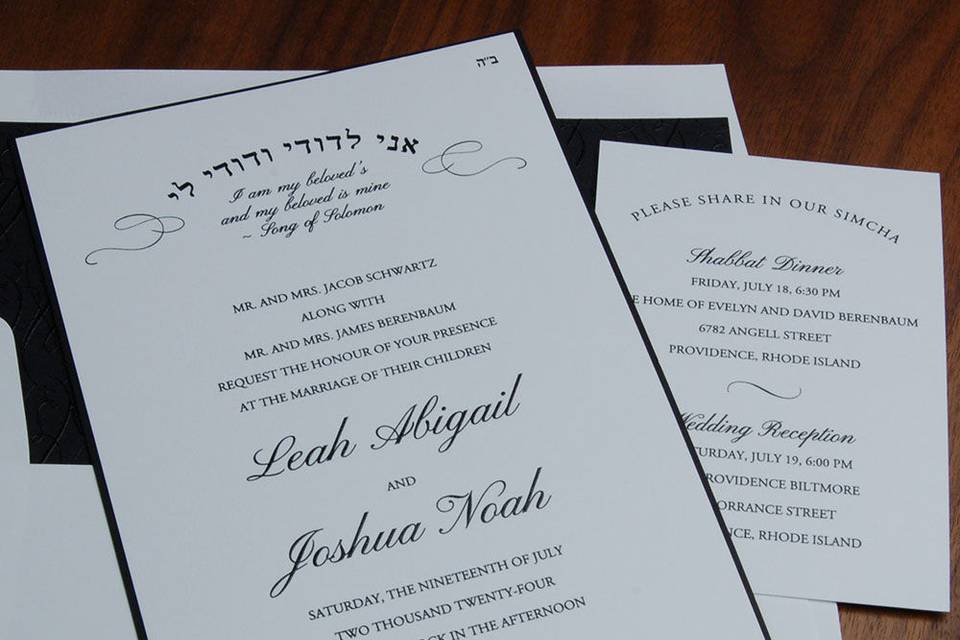 ב״ה
אני לדודי ודודי לי
I am my beloved's
and my beloved is mine
~ Song of Solomon
MR. AND MRS. JACOB SCHWARTZ
ALONG WITH
MR. AND MRS. JAMES BERENBAUM
REQUEST THE HONOUR OF YOUR PRESENCE
AT THE MARRIAGE OF THEIR CHILDREN
Leah Abigail
AND
Joshua Noah
SATURDAY, THE NINETEENTH OF JULY
TWO THOUSAND TWENTY-FOUR
IN THE AFTERNOON
PLEASE SHARE IN OUR SIMCHA
Shabbat Dinner
FRIDAY, JULY 18, 6:30 PM
HOME OF EVELYN AND DAVID BERENBAUM
6782 ANGELL STREET
PROVIDENCE, RHODE ISLAND
Wedding Reception
JULY 19, 6:00 PM
BILTMORE
STREET
RHODE ISLAND